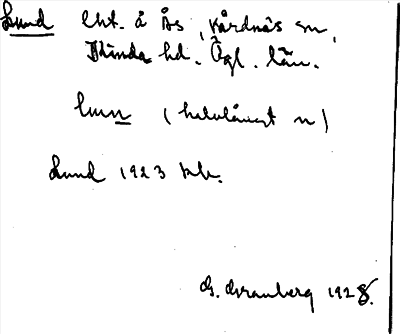 Lund lht. å Ås, Vårdnäs sn,
Kinda hd. Ögl. län.
lun (halvlångt n)
Lund 1923 kb.
G. Granberg 1928.